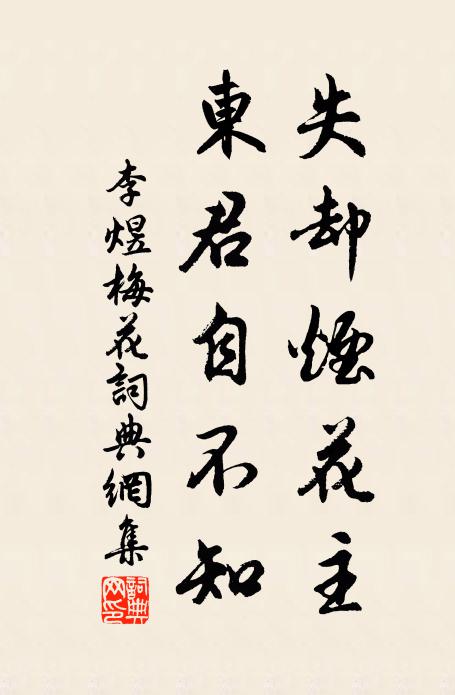 失却煙花主
東君自不知
李煜梅花詞典網集
詞典網印